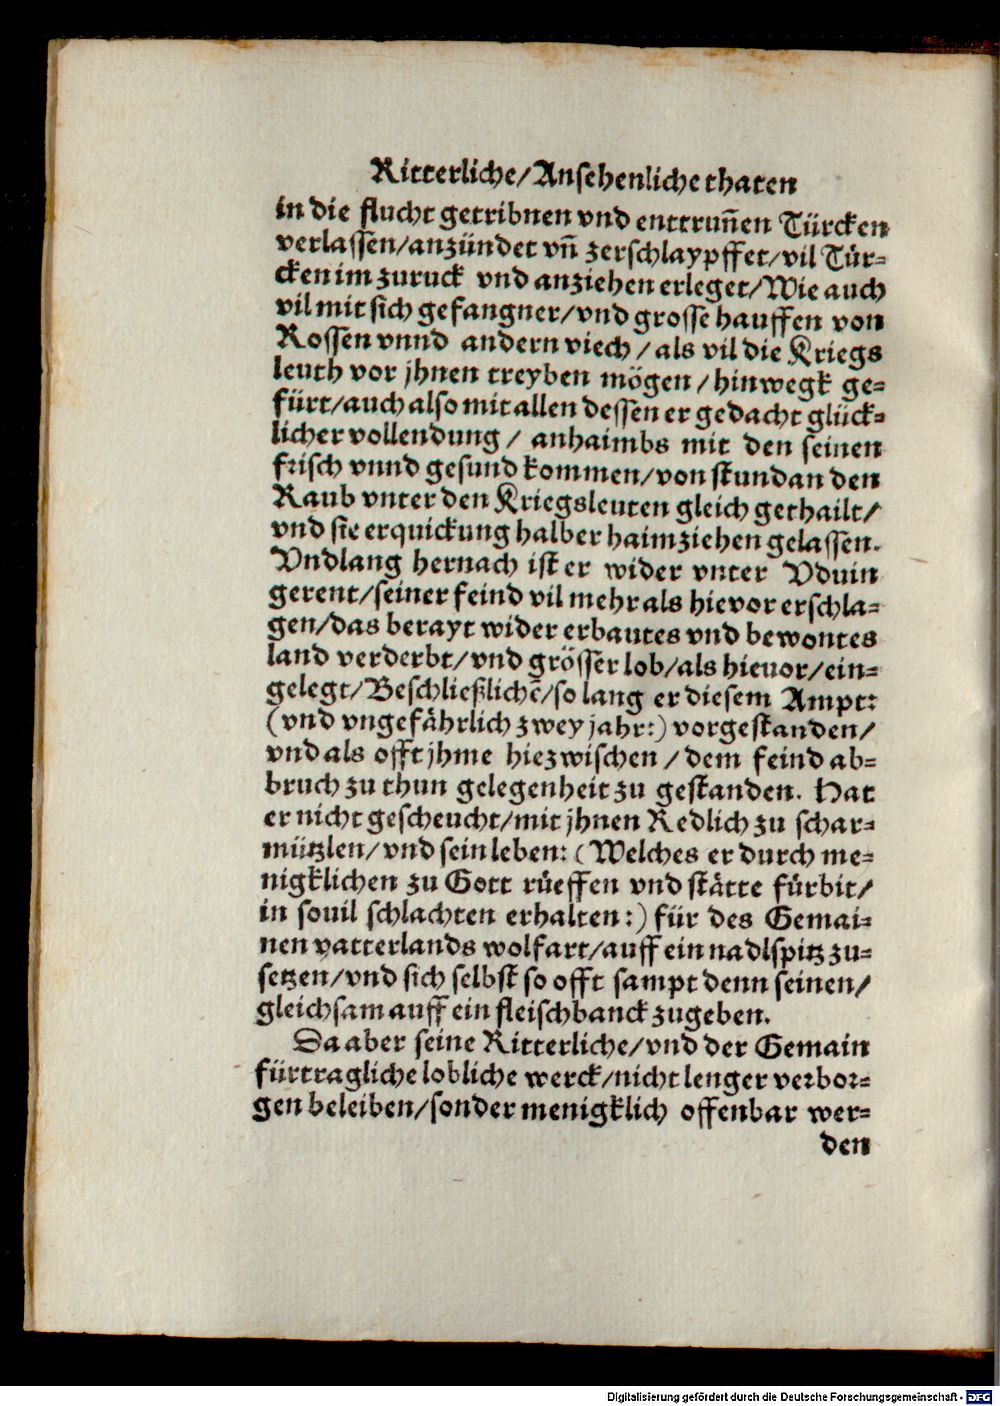 Ritterliche/Ansehenliche thaten
in die flucht getribnen vnd enttrun̄en Türcken
verlassen/anzündet vn̄ zerschlaypffet/vil Tür=
cken im zuruck vnd anziehen erleget/Wie auch
vil mit sich gefangner/vnd grosse hauffen von
Rossen vnnd andern viech/als vil die Kriegs
leuth vor jhnen treyben mögen/hinwegk ge=
fürt/auch also mit allen dessen er gedacht glück=
licher vollendung/anhaimbs mit den seinen
frisch vnnd gesund kommen/von stundan den
Raub vnter den Kriegsleuten gleich gethailt/
vnd sie erquickung halber haimziehen gelassen.
Vndlang hernach ist er wider vnter Vduin
gerent/seiner feind vil mehr als hievor erschla=
gen/das berayt wider erbautes vnd bewontes
land verderbt/vnd grösser lob/als hieuor/ein=
gelegt/Beschließlichē/so lang er diesem Ampt:
(vnd vngefährlich zwey jahr:) vorgestanden/
vnd als offt jhme hiezwischen/dem feind ab=
bruch zu thun gelegenheit zu gestanden. Hat
er nicht gescheucht/mit jhnen Redlich zu schar=
mützlen/vnd sein leben: (Welches er durch me=
nigklichen zu Gott rüeffen vnd stätte fürbit/
in souil schlachten erhalten:) für des Gemai=
nen vatterlands wolfart/auff ein nadlspitz zu=
setzen/vnd sich selbst so offt sampt denn seinen/
gleichsam auff ein fleischbanck zugeben.
Da aber seine Ritterliche/vnd der Gemain
fürtragliche lobliche werck/nicht lenger verbor=
gen beleiben/sonder menigklich offenbar wer=
den
Digitalisierung gefördert durch die Deutsche Forschungsgemeinschaft - DFG